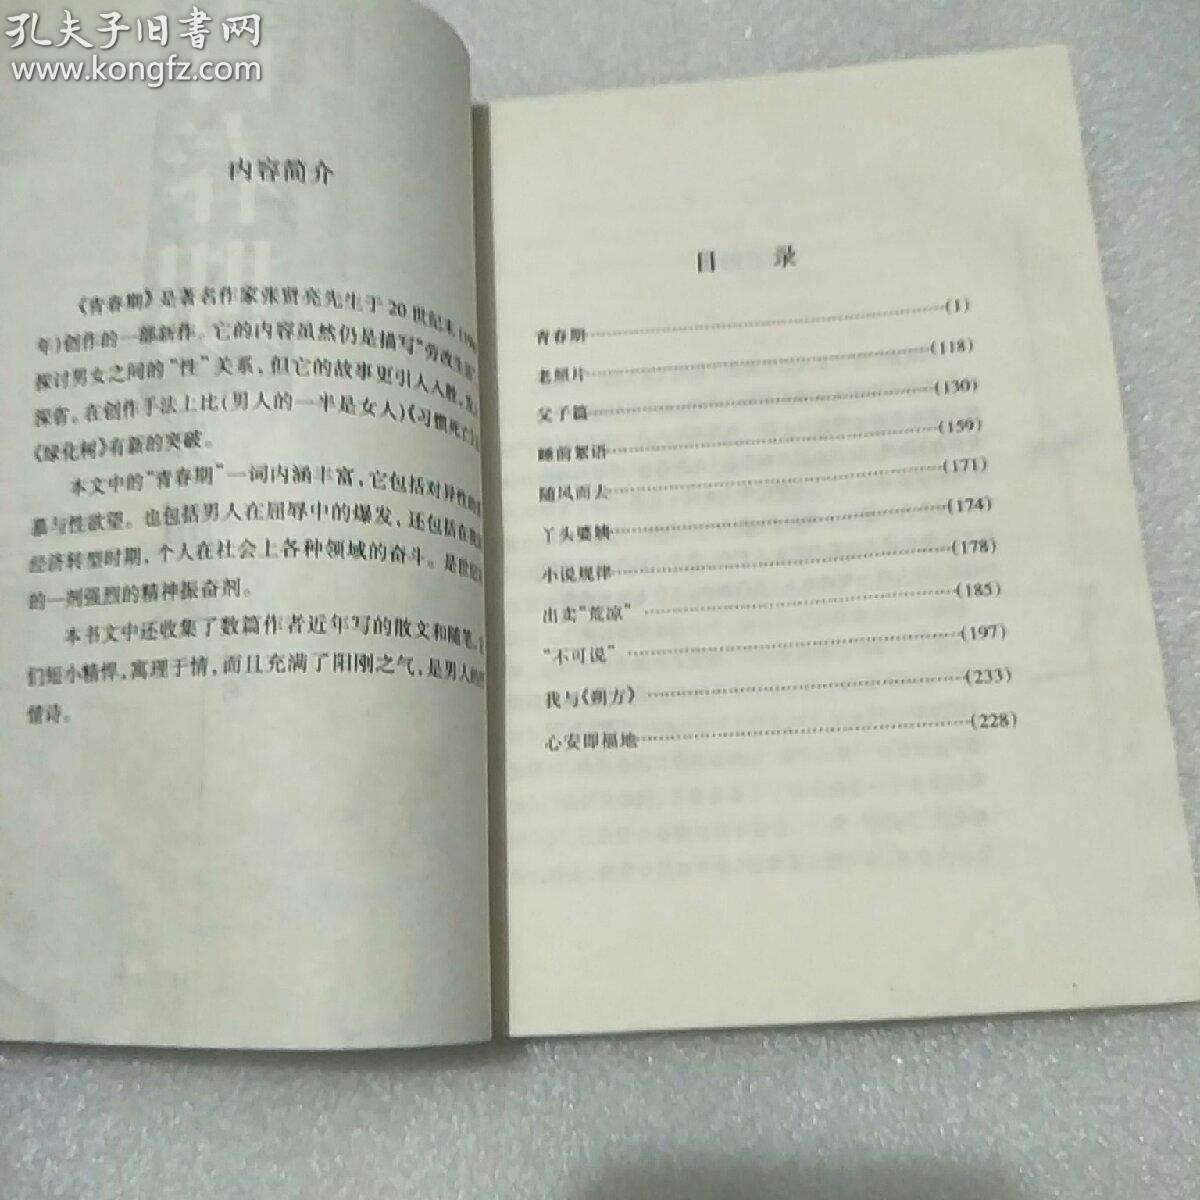 孔夫子旧書网
www.kongfz.com
内容简介
《青春期》是著名作家张贤亮先生于20世纪末(
年)创作的一部新作。它的内容虽然仍是描写“劳改生活”
探讨男女之间的“性”关系,但它的故事更引人入胜,发人
深省。在创作手法上比(男人的一半是女人)《习惯死亡》
《绿化树》有新的突破。
本文中的“青春期”一词内涵丰富,它包括对异性的
慕与性欲望。也包括男人在屈辱中的爆发,还包括在
经济转型时期,个人在社会上各种领域的奋斗。是世纪
的一剂强烈的精神振奋剂。
本书文中还收集了数篇作者近年写的散文和随笔,它
们短小精悍,寓理于情,而且充满了阳刚之气,是男人的
情诗。
目录
青春期……(1)
老照片……(118)
父子篇……(130)
睡前絮语……(159)
随风而去……(171)
丫头婆姨……(174)
小说规律……(178)
出卖“荒凉”……(185)
“不可说”……(197)
我与《朔方》……(233)
心安即福地……(228)